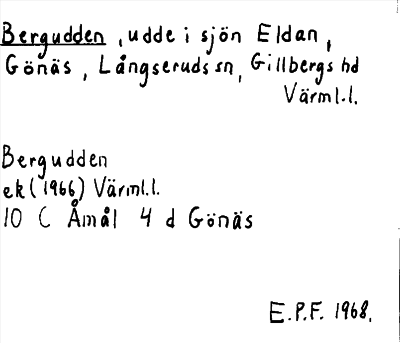 Bergudden , udde i sjön Eldan,
Gönäs , Långseruds sn, Gillbergs hd
Värml.l.
Bergudden
ek (1966) Värml.l.
10 C Åmål 4 d Gönäs
E.P.F. 1968.